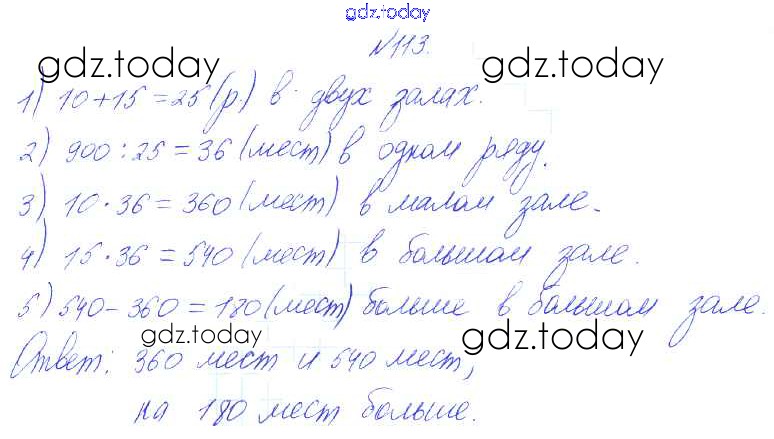 gdz.today
№113.
gdz.today gdz.today
1) 10+15=25(р.) в двух залах.
2) 900:25=36(мест) в одном ряду.
3) 10·36=360(мест) в малом зале.
4) 15·36=540(мест) в большом зале.
5) 540-360=180(мест) больше в большом зале.
gdz.today gdz.today
Ответ: 360 мест и 540 мест,
на 180 мест больше.